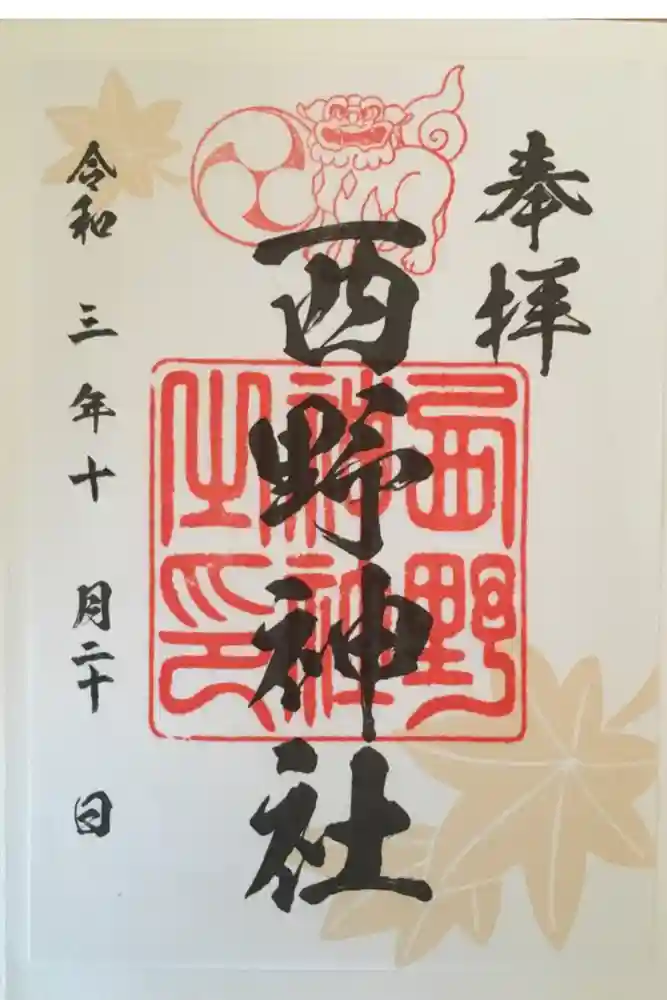 奉拝
西野神社
西野神社之印
令和三年十月二十日